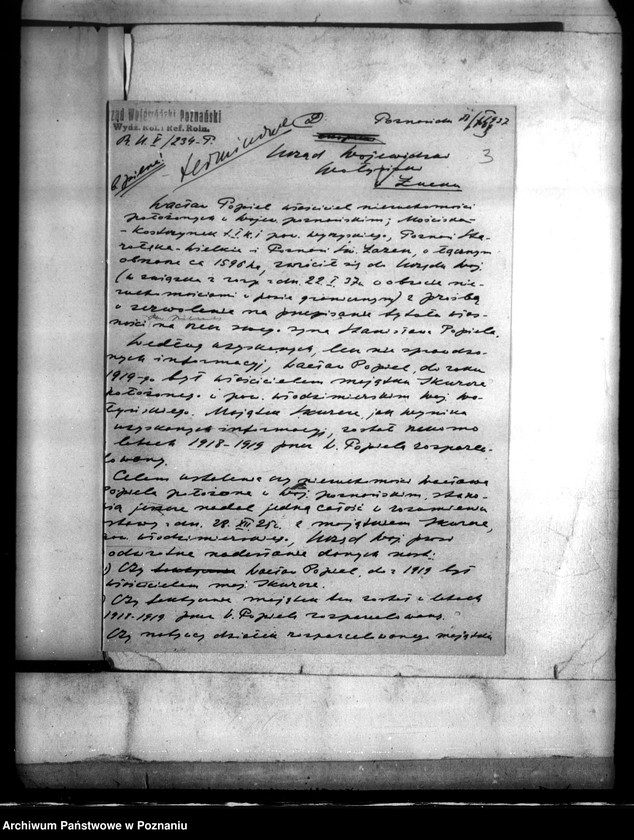 ząd Wojewódzki Poznański
Wydz. Rol. i Ref. Roln.
R.U. V/234-P.
Poznań, 1937
3
Urząd Wojewódzki
Łucku
Wacław Popiel właściciel nieruchomości
położonych w wojew. poznańskim; Mościska-
-Kostrzynek i pow. wyrzyskiego, Poznań Sta-
rołęka-Wielka i Poznań Św. Łazarz, o łącznym
obszarze ca 1596 ha, zwrócił się do Urzędu Woj
(w związku z rozp. z dn. 22. I. 37 o obrocie nie-
ruchomościami w pasie granicznym) z prośbą
o zezwolenie na przepisanie tytułu włas-
ności na rzecz swego syna Stanisława Popiela.
Według uzyskanych, lecz nie sprawdzo-
nych informacji, Wacław Popiel, do roku
1919-go był właścicielem majątku Skurcze
położonego w pow. włodzimierskim woj. wo-
łyńskiego. Majątek Skurcze, jak wynika
uzyskanych informacji, został rzekomo
latach 1918-1919 przez W. Popiela rozparce-
lowany.
Celem ustalenia czy nieruchomości Wacława
Popiela położone w woj. poznańskim, stano-
wią jeszcze nadal jedną całość w rozumieniu
ustawy z dn. 28. XII. 25 r. z majątkiem Skurcze,
pow. włodzimierskiego, Urząd Woj prosi
odwrotne nadesłanie danych
) Czy Wacław Popiel, do r. 1919 był
właścicielem maj. Skurcze.
) Czy faktycznie majątek ten został w latach
1918-1919 przez W. Popiela rozparcelowany.
Czy nabywcy działek rozparcelowanego majątku
Archiwum Państwowe w Poznaniu